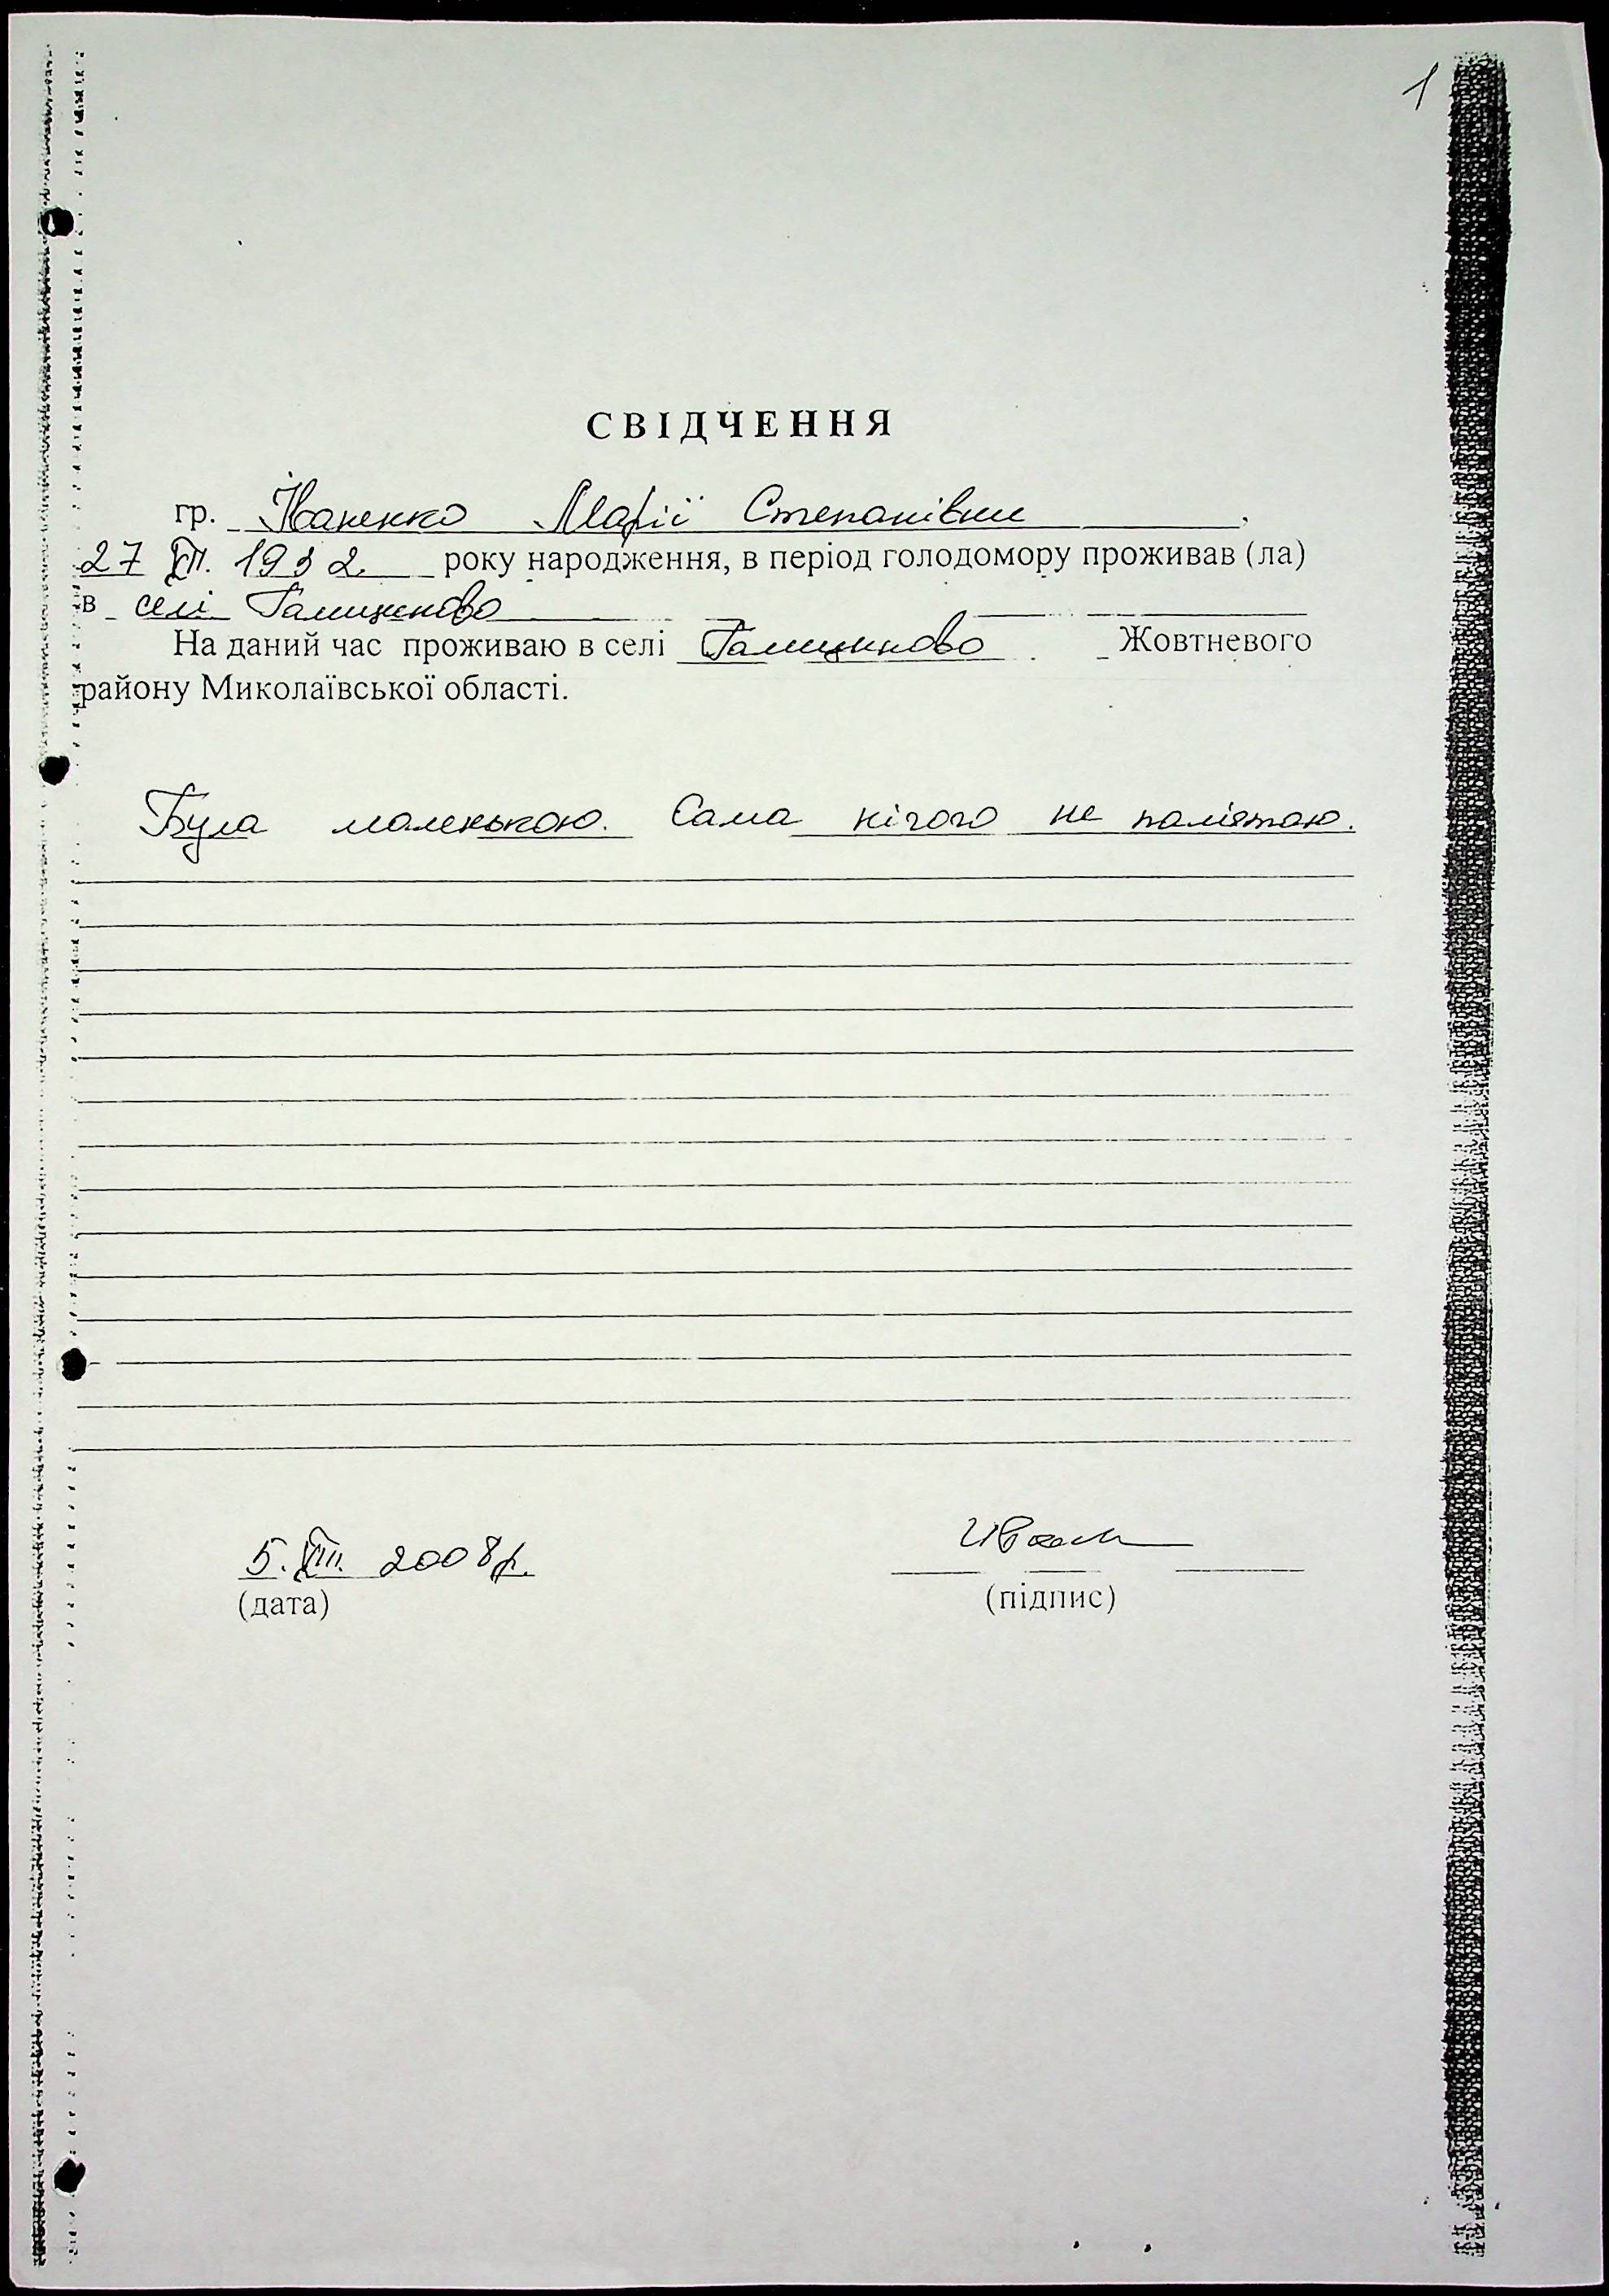 1
СВІДЧЕННЯ
гр. Іваненко Марії Степанівни
27 XII. 1932. року народження, в період голодомору проживав (ла)
в селі Галициново
На даний час проживаю в селі Галициново Жовтневого
району Миколаївської області.
Була маленькою. Сама нічого не памʼятаю.
5. XIII. 2008р.
(дата)
(підпис)